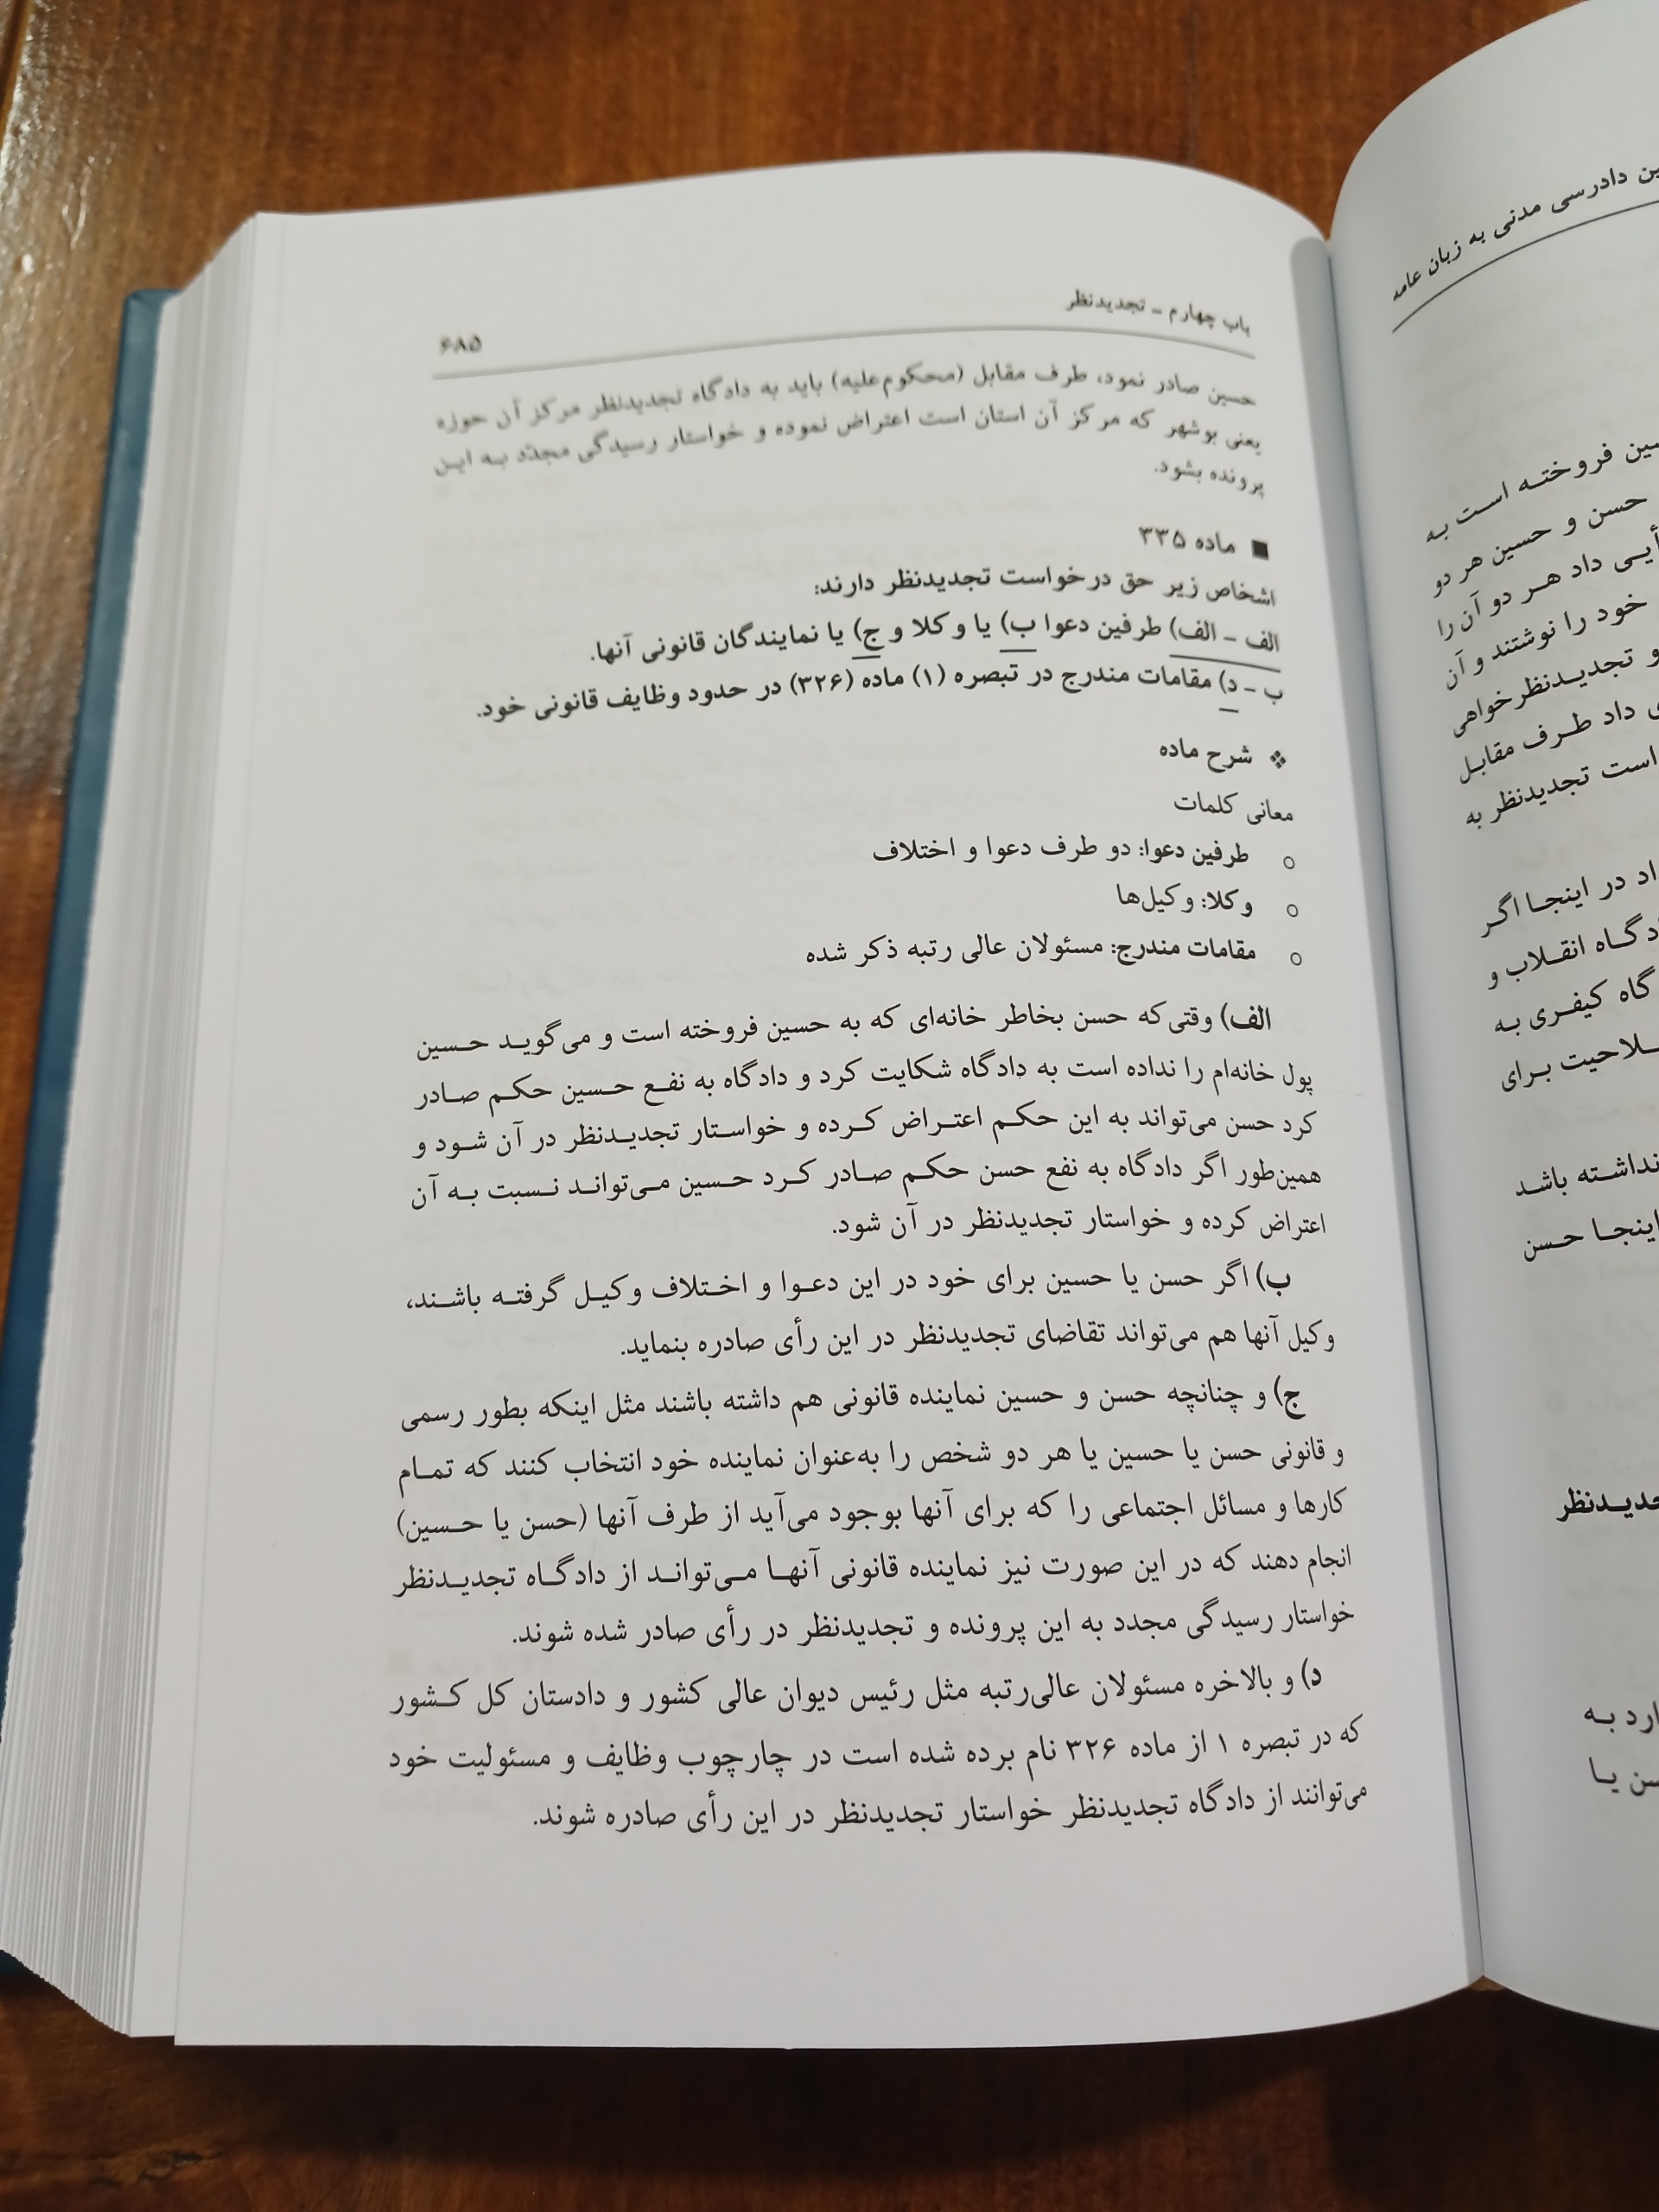 باب چهارم ـ تجدیدنظر
۶۸۵
حسین صادر نمود، طرف مقابل (محکوم‌علیه) باید به دادگاه تجدیدنظر مرکز آن حوزه
یعنی بوشهر که مرکز آن استان است اعتراض نموده و خواستار رسیدگی مجدّد به این
پرونده بشود.
■ ماده ۳۳۵
اشخاص زیر حق درخواست تجدیدنظر دارند:
الف ـ الف) طرفین دعوا ب) یا وکلا و ج) یا نمایندگان قانونی آنها.
ب ـ د) مقامات مندرج در تبصره (۱) ماده (۳۲۶) در حدود وظایف قانونی خود.
❖ شرح ماده
معانی کلمات
○ طرفین دعوا: دو طرف دعوا و اختلاف
○ وکلا: وکیل‌ها
○ مقامات مندرج: مسئولان عالی رتبه ذکر شده
الف) وقتی‌که حسن بخاطر خانه‌ای که به حسین فروخته است و می‌گوید حسین
پول خانه‌ام را نداده است به دادگاه شکایت کرد و دادگاه به نفع حسین حکم صادر
کرد حسن می‌تواند به این حکم اعتراض کرده و خواستار تجدیدنظر در آن شود و
همین‌طور اگر دادگاه به نفع حسن حکم صادر کرد حسین می‌تواند نسبت به آن
اعتراض کرده و خواستار تجدیدنظر در آن شود.
ب) اگر حسن یا حسین برای خود در این دعوا و اختلاف وکیل گرفته باشند،
وکیل آنها هم می‌تواند تقاضای تجدیدنظر در این رأی صادره بنماید.
ج) و چنانچه حسن و حسین نماینده قانونی هم داشته باشند مثل اینکه بطور رسمی
و قانونی حسن یا حسین یا هر دو شخص را به‌عنوان نماینده خود انتخاب کنند که تمام
کارها و مسائل اجتماعی را که برای آنها بوجود می‌آید از طرف آنها (حسن یا حسین)
انجام دهند که در این صورت نیز نماینده قانونی آنها می‌تواند از دادگاه تجدیدنظر
خواستار رسیدگی مجدد به این پرونده و تجدیدنظر در رأی صادر شده شوند.
د) و بالاخره مسئولان عالی‌رتبه مثل رئیس دیوان عالی کشور و دادستان کل کشور
که در تبصره ۱ از ماده ۳۲۶ نام برده شده است در چارچوب وظایف و مسئولیت خود
می‌توانند از دادگاه تجدیدنظر خواستار تجدیدنظر در این رأی صادره شوند.
دادرسی مدنی به زبان عامه
فروخته است به
حسن و حسین هر دو
داد هر دو آن را
خود را نوشتند و آن
و تجدیدنظرخواهی
داد طرف مقابل
است تجدیدنظر به
در اینجا اگر
انقلاب و
کیفری به
برای
نداشته باشد
اینجا حسن
به
یا